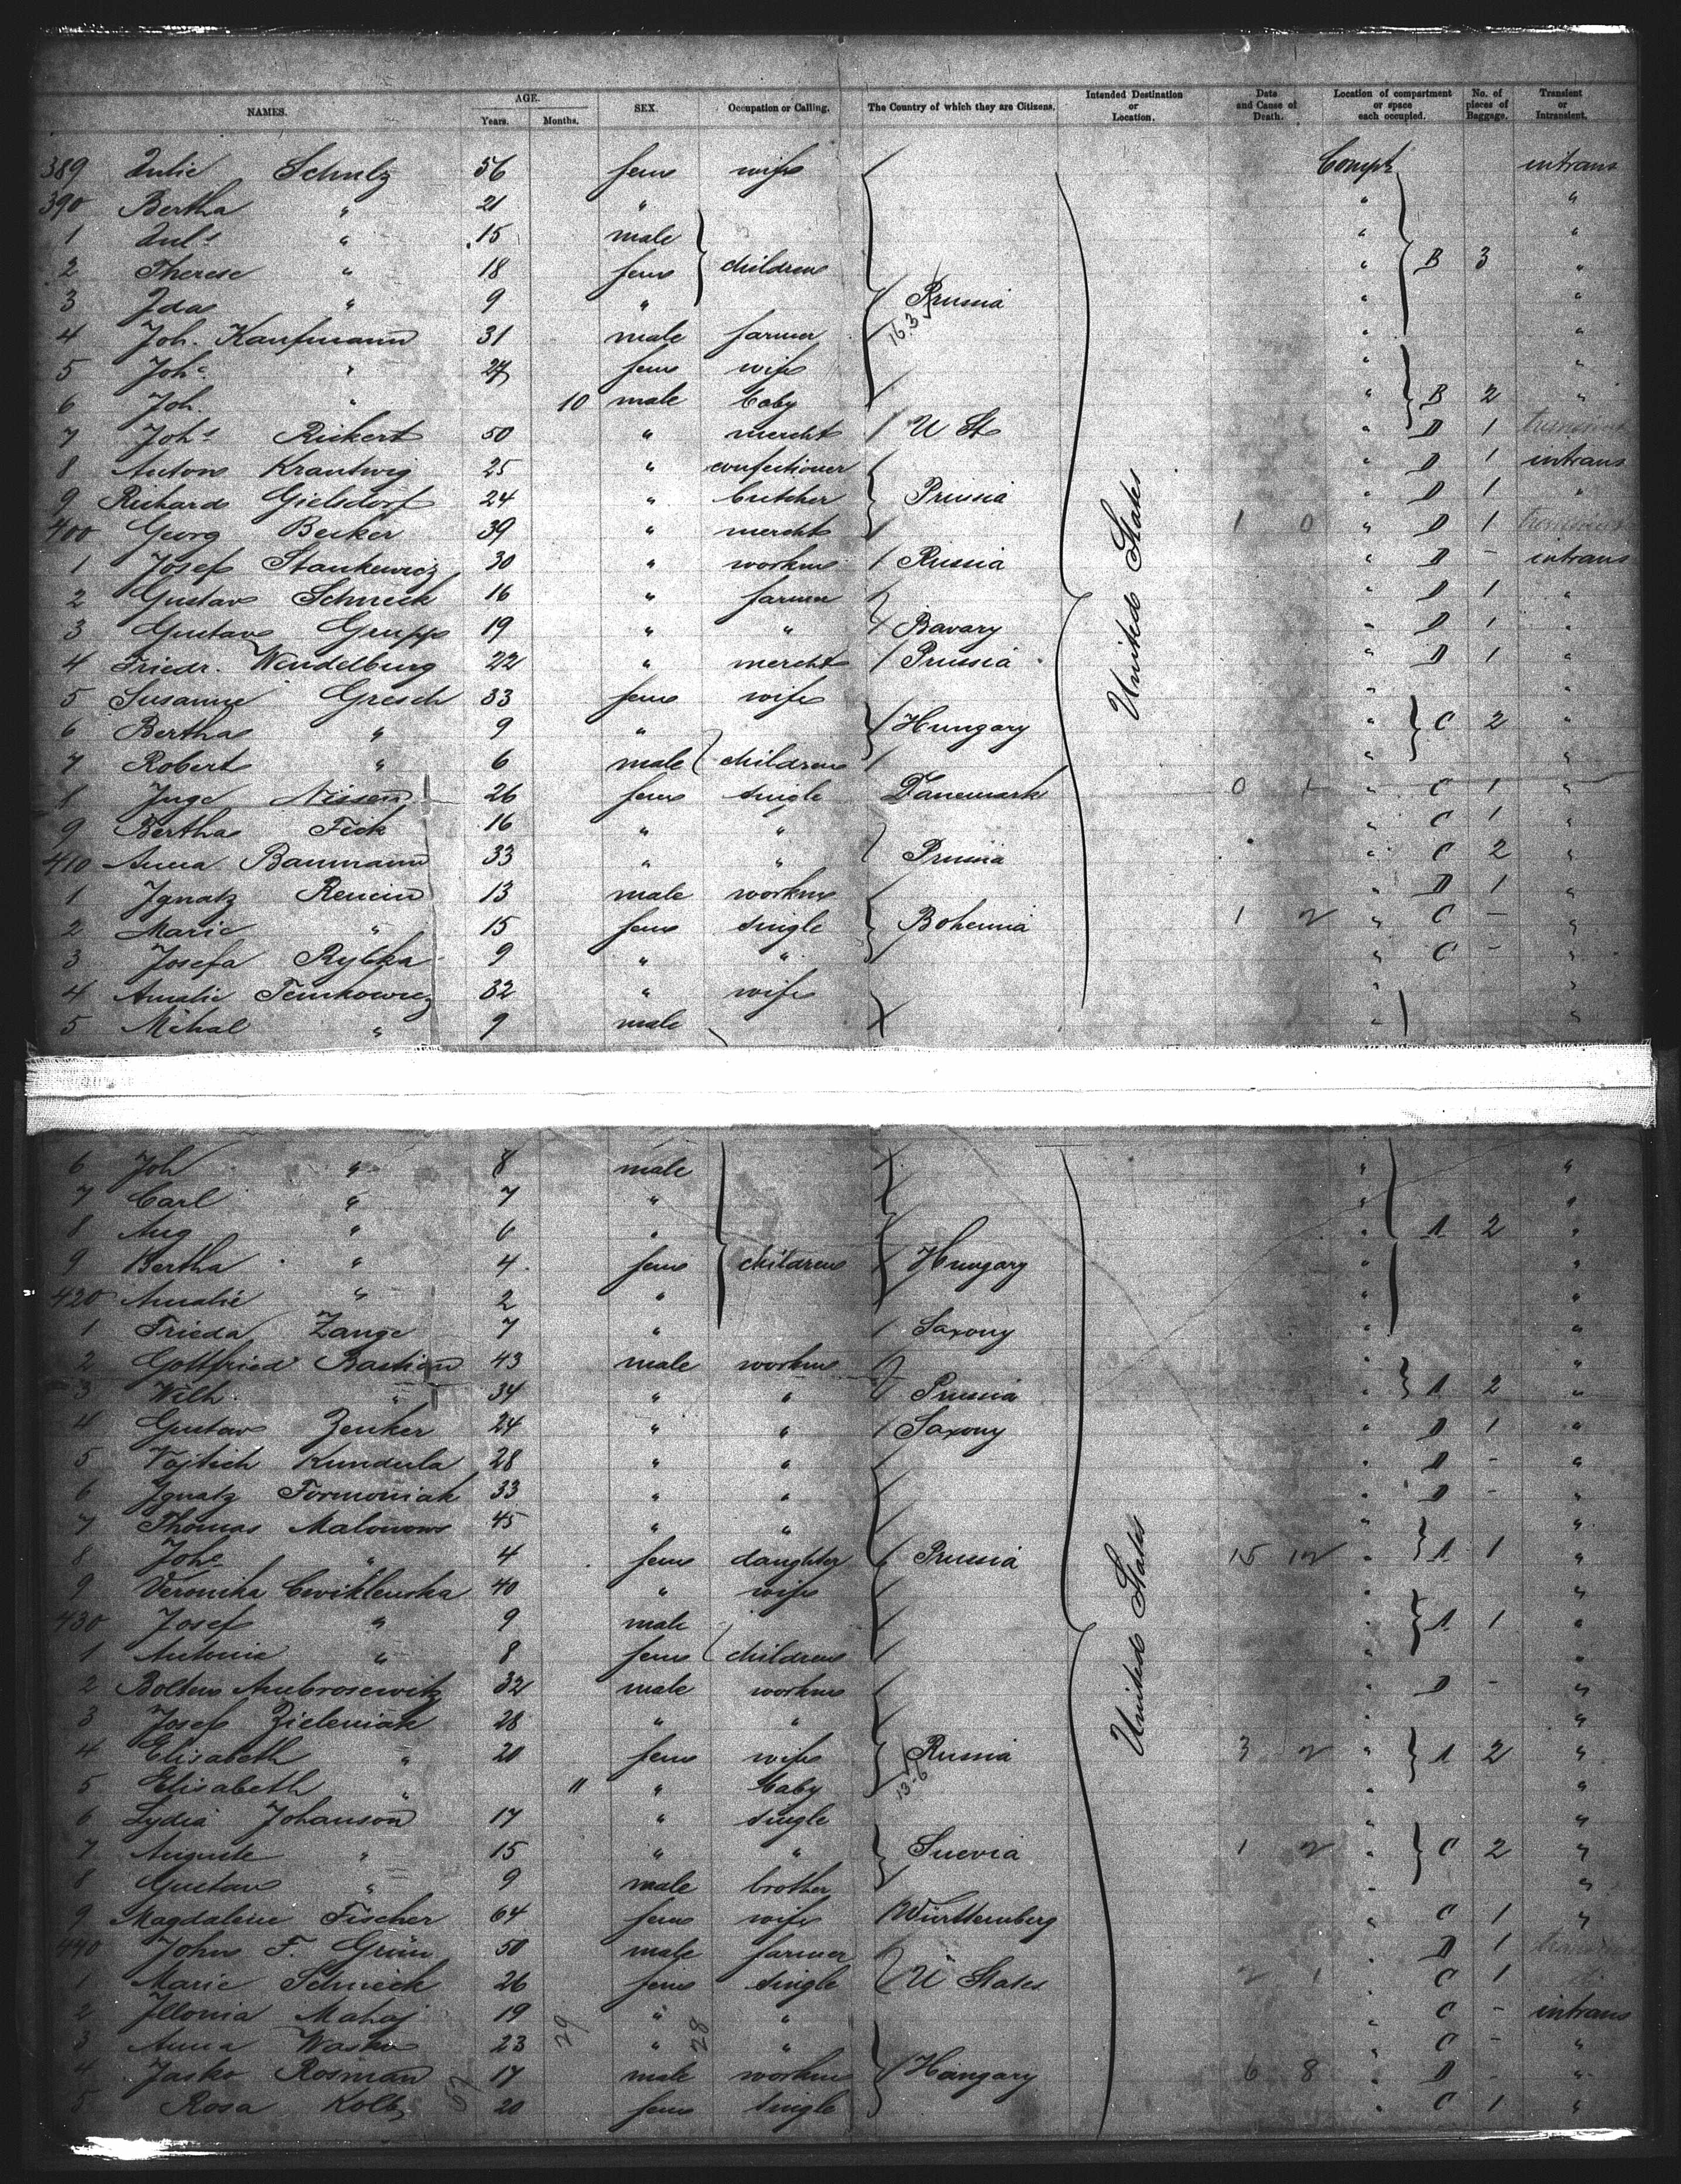 NAMES. AGE. Years. Months. SEX. Occupation or Calling. The Country of which they are Citizens. Intended Destination or Location. Date and Cause of Death. Location of compartment or space each occupied. No. of pieces of Baggage. Transient or Intransient.
389 Julie Schulz 56 fem wife Compt intrans
390 Bertha " 21 " " "
1 Juls " 15 male " "
2 Therese " 18 fem children " B 3 "
3 Ida " 9 " Prussia " "
4 Joh. Kaufmann 31 male farmer 16.3 " "
5 Johe " 27 fem wife " "
6 Joh. " 10 male baby " B 2 "
7 Johs Rickert 50 " mercht U St " D 1 transient
8 Anton Krautwig 25 " confectioner " D 1 intrans
9 Richard Gielsdorf 24 " butcher Prussia " D 1 "
400 Georg Becker 39 " mercht 1 0 " D 1 transient
1 Josef Stankewicz 30 " workm Russia " D - intrans
2 Gustav Schneck 16 " farmer " D 1 "
3 Gustav Grupp 19 " " Bavary " D 1 "
4 Friedr. Wendelburg 22 " mercht Prussia " D 1 "
5 Susanne Gresch 33 fem wife " "
6 Bertha " 9 " Hungary " C 2 "
7 Robert " 6 male children " "
8 Inge Nissen 26 fem single Danemark 0 1 " C 1 "
9 Bertha Fick 16 " " " C 1 "
410 Anna Baumann 33 " " Prussia " C 2 "
1 Ignatz Rencin 13 male workm " D 1 "
2 Marie " 15 fem single Bohemia 1 2 " C - "
3 Josefa Rybka 9 " " " C - "
4 Amalie Temkowicz 32 " wife " "
5 Mihal " 9 male " "
United States
6 Joh " 8 male " "
7 Carl " 7 " " "
8 Aug " 6 " " A 2 "
9 Bertha " 4 fem children Hungary " "
420 Amalie " 2 " " "
1 Frieda Zange 7 " Saxony " "
2 Gottfried Bastian 43 male workm " "
3 Wilh. " 34 " " Prussia " A 2 "
4 Gustav Zenker 24 " " Saxony " D 1 "
5 Vojtich Kundula 28 " " " D - "
6 Ignatz Formoniak 33 " " " D - "
7 Thomas Malonow 45 " " " "
8 Johe " 4 fem daughter Prussia 15 12 " A 1 "
9 Veronika Cwiklenska 40 " wife " "
430 Josef " 9 male " A 1 "
1 Antonia " 8 fem children " "
2 Ambrosewitz 32 male workm " D - "
3 Josef Zieleniak 28 " " " "
4 Elisabeth " 20 fem wife Russia 3 2 " A 2 "
5 Elisabeth " 11 " baby 13-6 " "
6 Lydia Johanson 17 " single " "
7 Auguste " 15 " " Suevia 1 2 " C 2 "
8 Gustav " 9 male brother " "
9 Magdalene Fischer 64 fem wife Württemberg " C 1 "
440 John F. Grün 50 male farmer " D 1
1 Marie Schneck 26 fem single U States 2 1 " C 1
2 Illonia Mahaj 19 " " " C - intrans
3 Anna Wasko 23 29 " 28 " " C - "
4 Jasko Rosman 17 male workm Hungary 6 8 " D - "
5 Rosa Kolb 20 fem single " C 1 "
United States